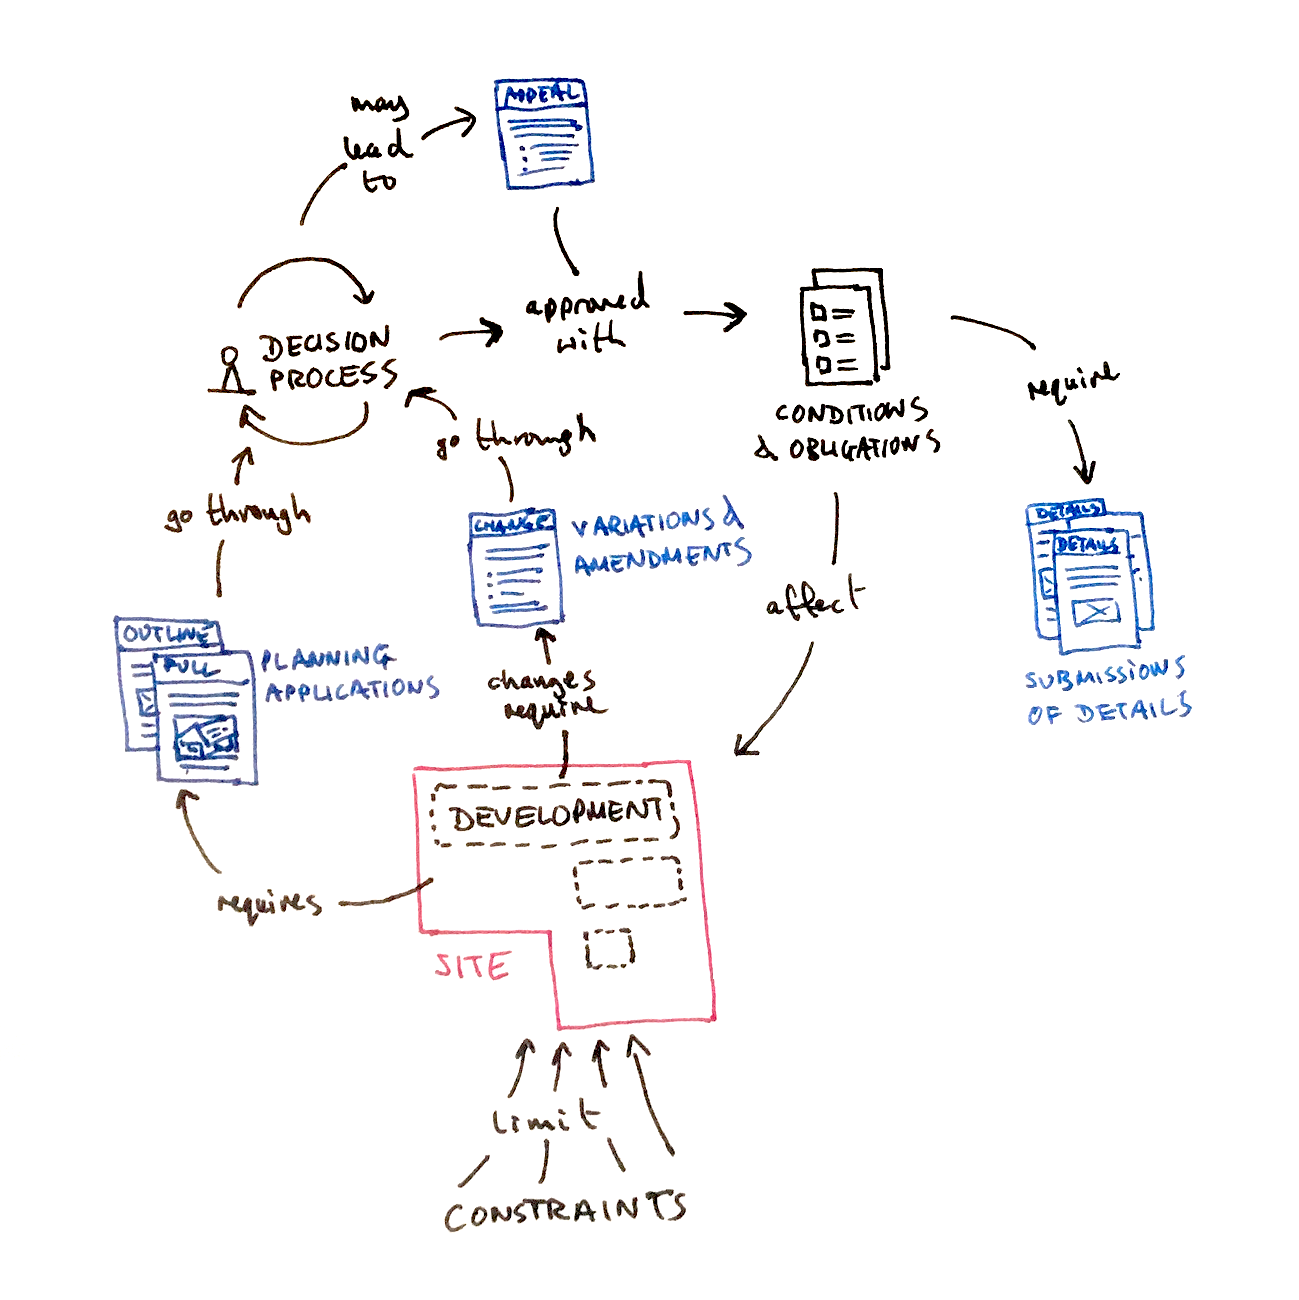 may
lead
to
APPEAL
approved
with
DECISION
PROCESS
go through
go through
CONDITIONS
& OBLIGATIONS
require
DETAILS
DETAILS
SUBMISSIONS
OF DETAILS
CHANGE
VARIATIONS &
AMENDMENTS
affect
OUTLINE
FULL
PLANNING
APPLICATIONS
changes
require
DEVELOPMENT
requires
SITE
limit
CONSTRAINTS